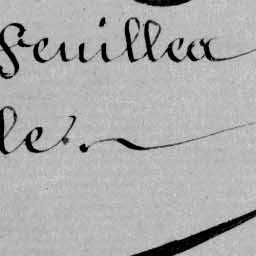 Feuillea
le.